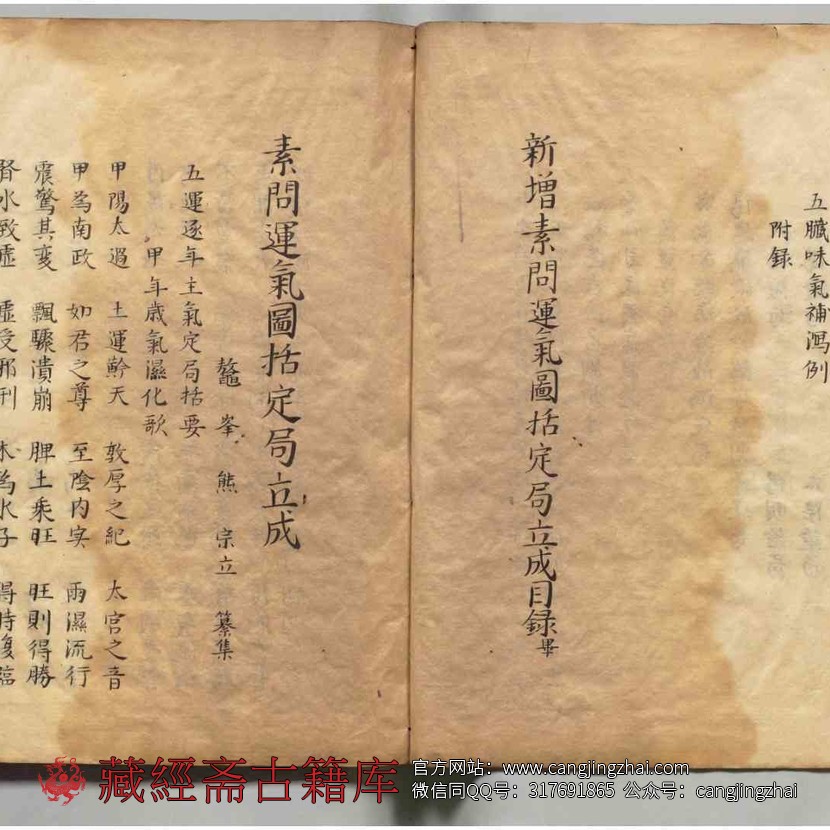 五臟味氣補瀉例
附録
新增素問運氣圖括定局立成目録畢
素問運氣圖括定局立成
鼇峯熊宗立纂集
五運逐年主氣定局括要
甲年歲氣濕化歌
甲陽太過 土運黅天 敦厚之紀 太宮之音
甲為南政 如君之尊 至陰内实 雨濕流行
震驚其变 飄驟潰崩 脾土乘旺 旺則得勝
腎水致虛 虛受邪刑 木為水子 得時復臨
藏經斋古籍库
官方网站：www.cangjingzhai.com
微信同QQ号：317691865 公众号：cangjingzhai